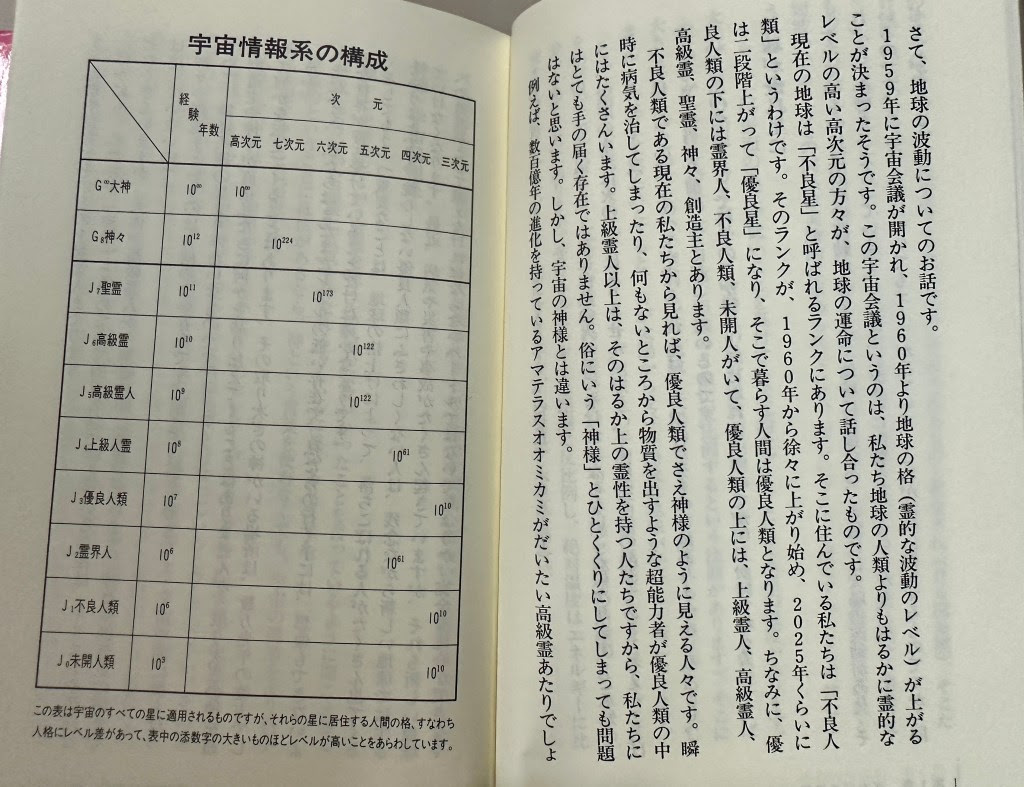 さて、地球の波動についてのお話です。
1959年に宇宙会議が開かれ、1960年より地球の格（霊的な波動のレベル）が上がる
ことが決まったそうです。この宇宙会議というのは、私たち地球の人類よりもはるかに霊的な
レベルの高い高次元の方々が、地球の運命について話し合ったものです。
現在の地球は「不良星」と呼ばれるランクにあります。そこに住んでいる私たちは「不良人
類」というわけです。そのランクが、1960年から徐々に上がり始め、2025年くらいに
は二段階上がって「優良星」になり、そこで暮らす人間は優良人類となります。ちなみに、優
良人類の下には霊界人、不良人類、未開人がいて、優良人類の上には、上級霊人、高級霊人、
高級霊、聖霊、神々、創造主とあります。
不良人類である現在の私たちから見れば、優良人類でさえ神様のように見える人々です。瞬
時に病気を治してしまったり、何もないところから物質を出すような超能力者が優良人類の中
にはたくさんいます。上級霊人以上は、そのはるか上の霊性を持つ人たちですから、私たちに
はとても手の届く存在ではありません。俗にいう「神様」とひとくくりにしてしまっても問題
はないと思います。しかし、宇宙の神様とは違います。
例えば、数百億年の進化を持っているアマテラスオオミカミがだいたい高級霊あたりでしょ
宇宙情報系の構成
経験年数 次元
高次元 七次元 六次元 五次元 四次元 三次元
G∞大神 10∞ 10∞
G₈神々 10¹² 10²²⁴
J₇聖霊 10¹¹ 10¹⁷³
J₆高級霊 10¹⁰ 10¹²²
J₅高級霊人 10⁹ 10¹²²
J₄上級人霊 10⁸ 10⁶¹
J₃優良人類 10⁷ 10¹⁰
J₂霊界人 10⁶ 10⁶¹
J₁不良人類 10⁶ 10¹⁰
J₀未開人類 10⁵ 10¹⁰
この表は宇宙のすべての星に適用されるものですが、それらの星に居住する人間の格、すなわち
人格にレベル差があって、表中の添数字の大きいものほどレベルが高いことをあらわしています。